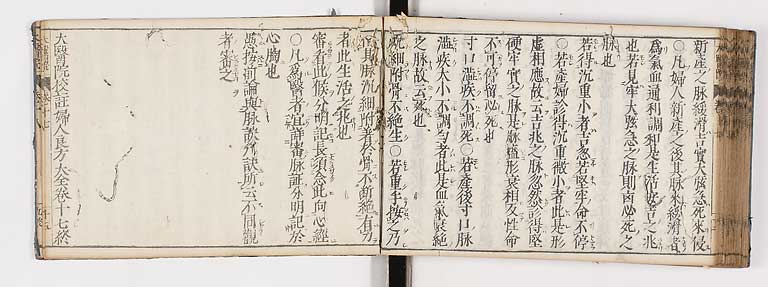 新產之脉緩滑吉實大弦急死來侵
○凡婦人新產之後其脉來緩滑者
爲氣血通利調和是生活安吉之兆
也若見牢大弦急之脉則凶必死之
脉也
若得沉重小者吉忽若堅牢命不停
○若產婦診得沉重微小者此是形
虛相應故云吉兆之脉忽然診得堅
硬牢實之脉是脉盛形衰相反性命
不可停留必死也
寸口濇疾不調死○若產後寸口脉
濇疾大小不調勻者此是血氣衰絕
之脉故云死也
沉細附骨不絕生○若重手按之乃
沉細附着於骨不斷絕有力
者此生活之兆也
審看此候分明記長須念此向心經
○凡爲醫者宜詳審脉証分明記於
心胸也
愚按前論與脉訣所云不同觀
者審之
太醫院校註婦人良方大全卷十七終